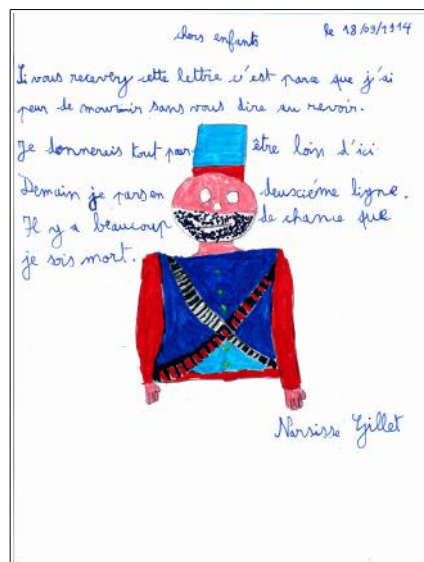 le 18/09/1914
chers enfants
Si vous recevery cette lettre c'est parce que j'ai
peur de mourrir sans vous dire au revoir.
Je donnerais tout pour être loin d'ici
Demain je pars en deuxciéme ligne.
Il y a beaucoup de chance que
je sois mort.
Narsisse Gillet